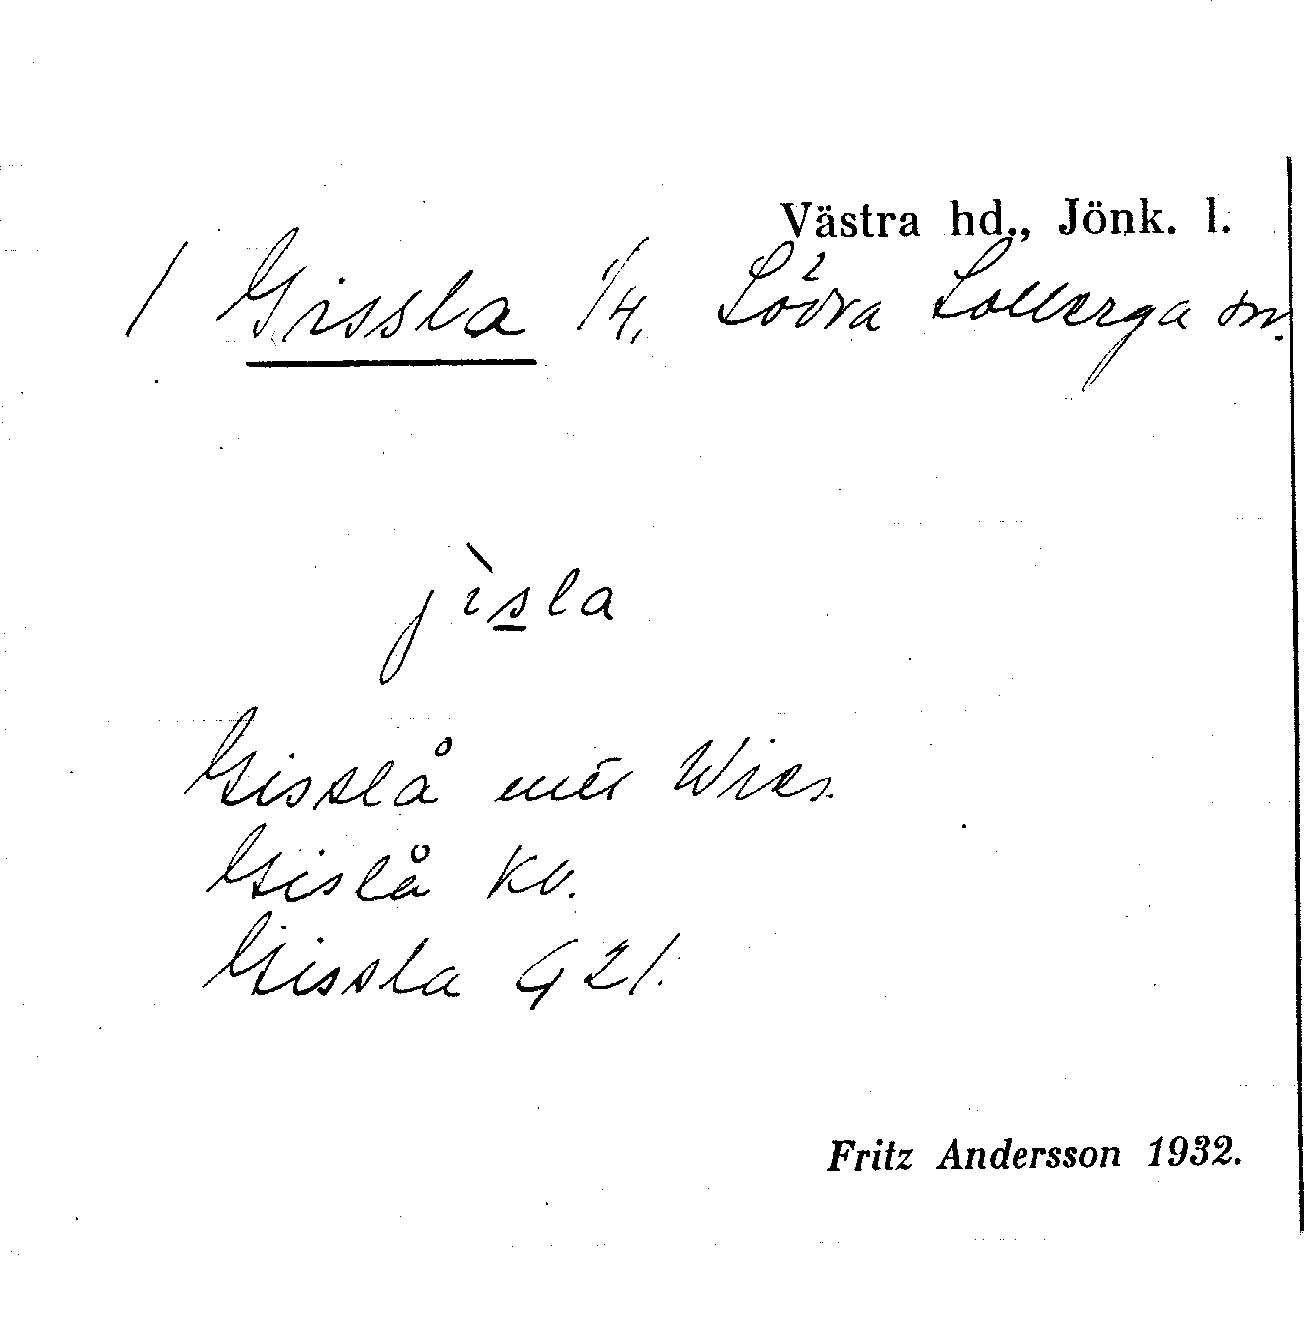 Västra hd., Jönk. l.
/ Gissla 1/4, Södra Solberga sn.
jìsla
Gisslå Wies.
Gislå KB.
Gissla G21.
Fritz Andersson 1932.